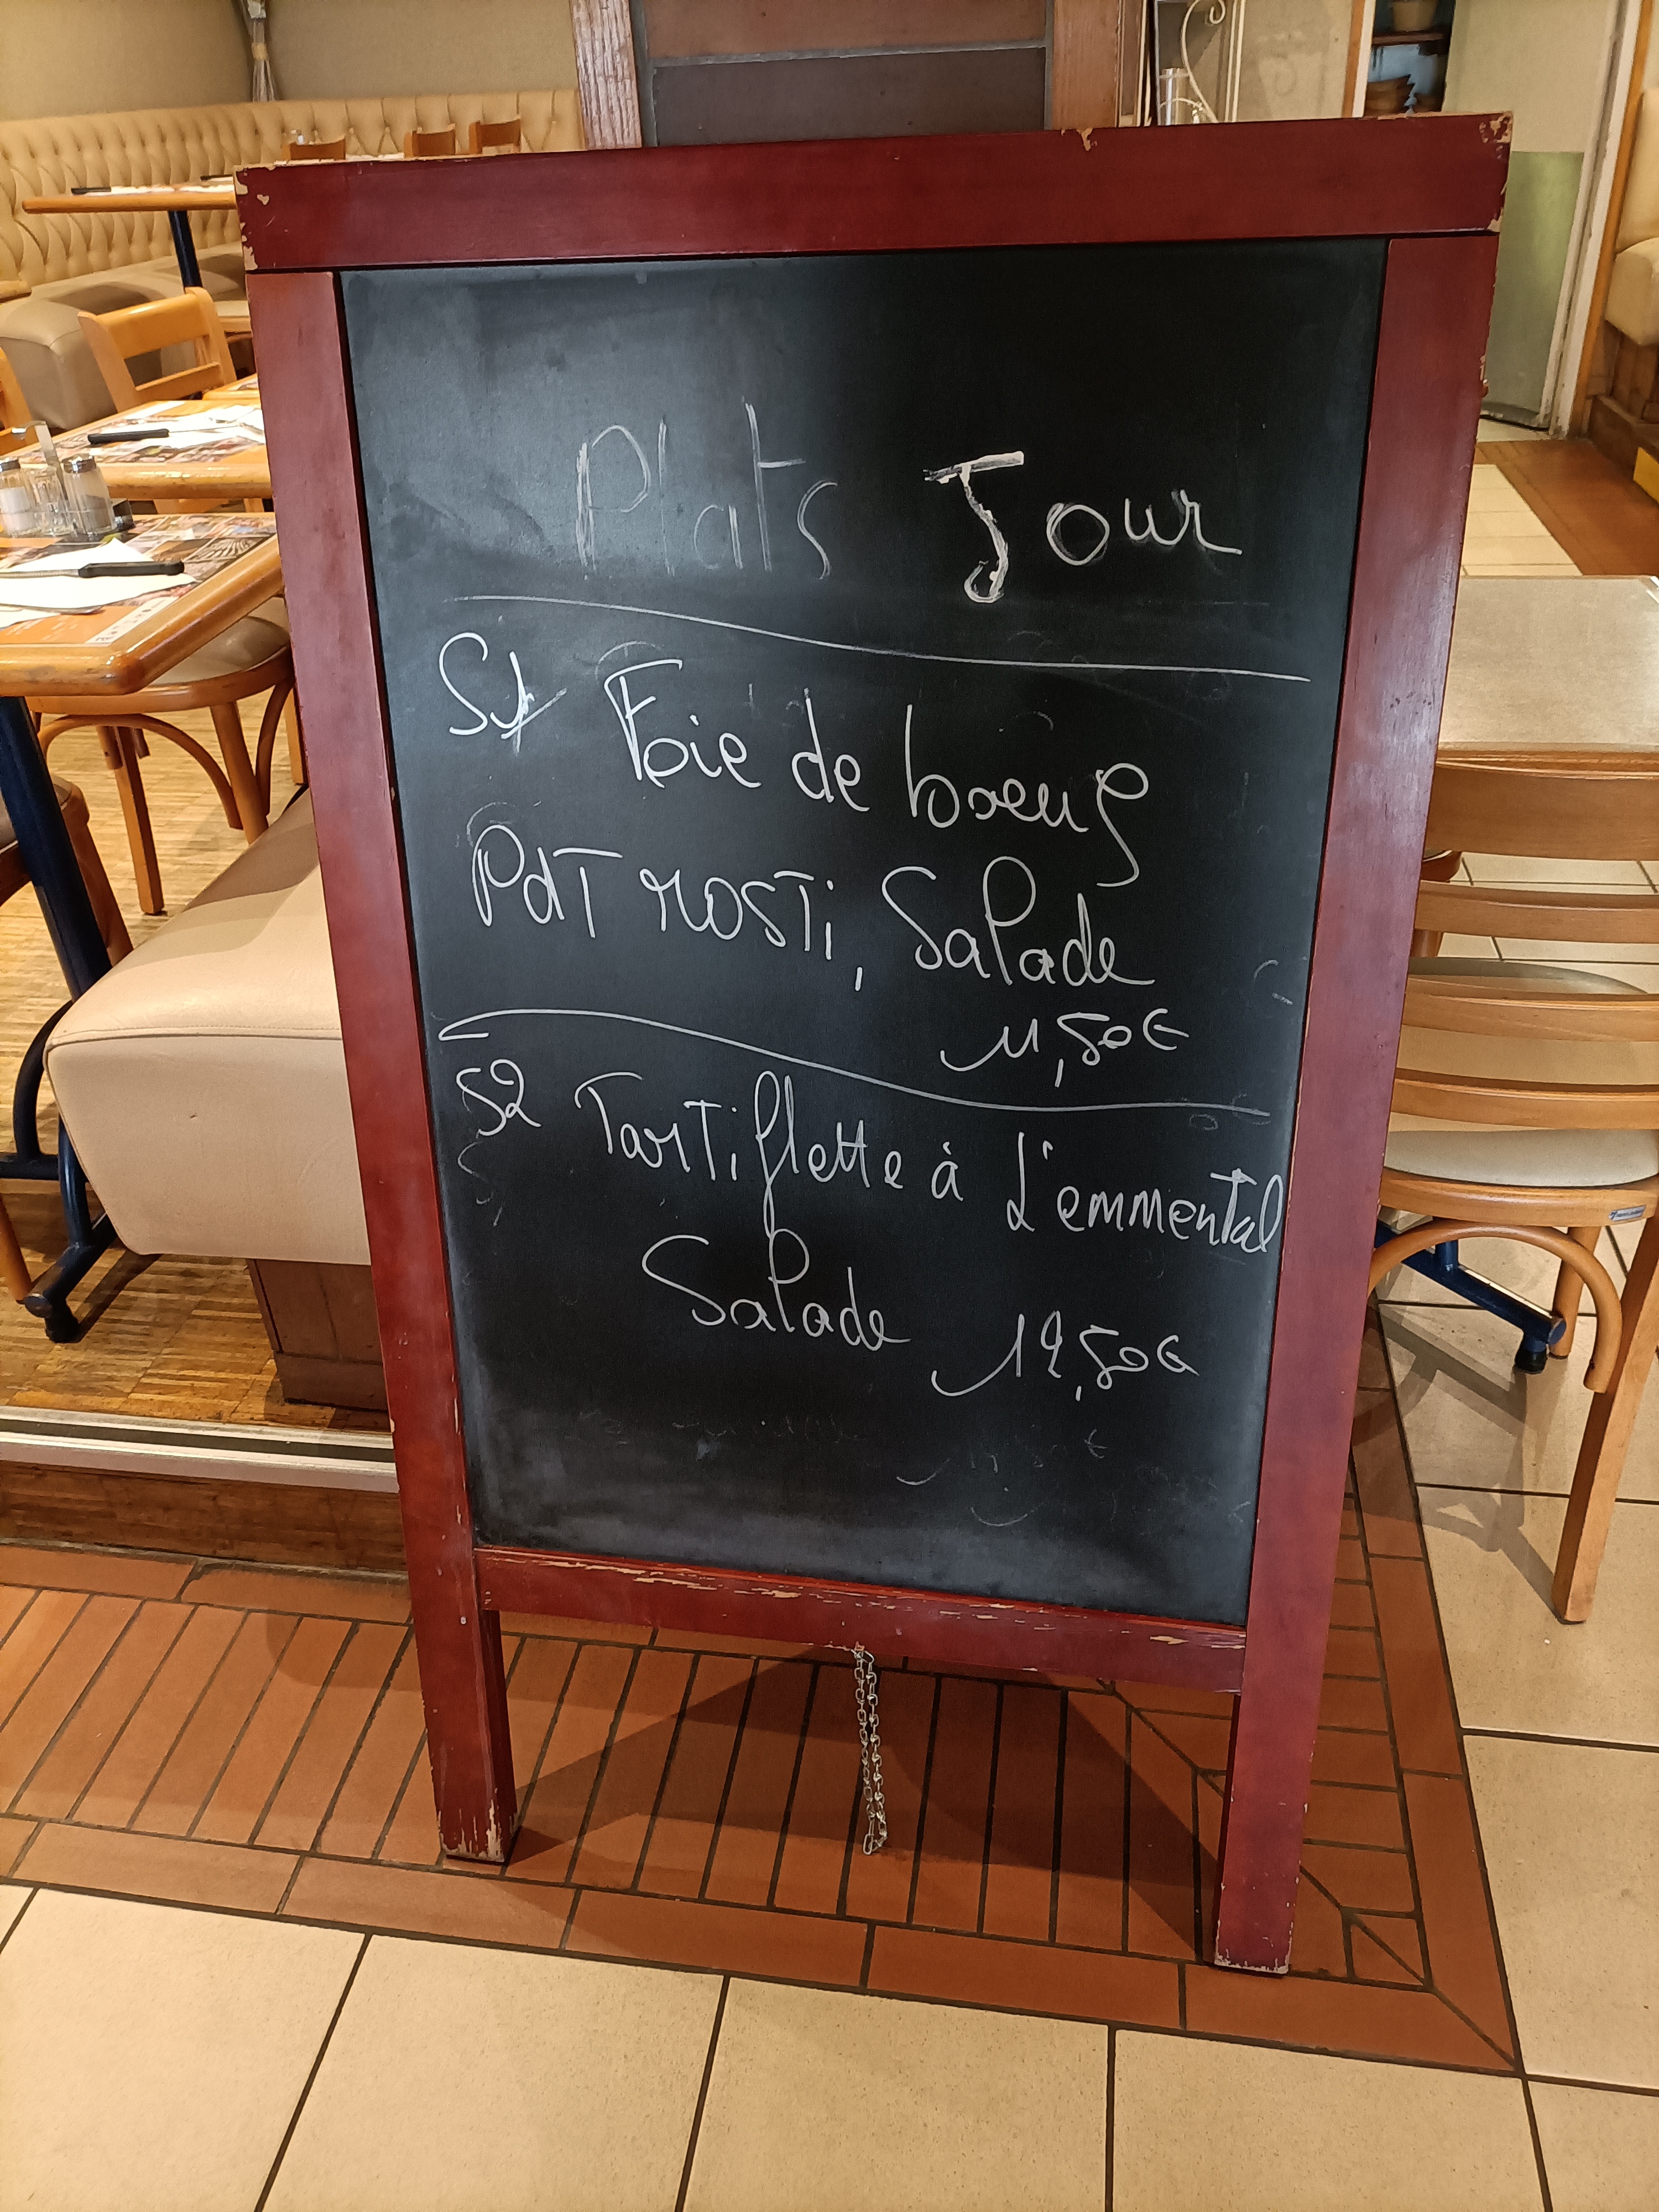 Plats Jour
S1 Foie de boeuf
PdT rosti, Salade
11,50€
S2 Tartiflette à l'emmental
Salade 12,50€